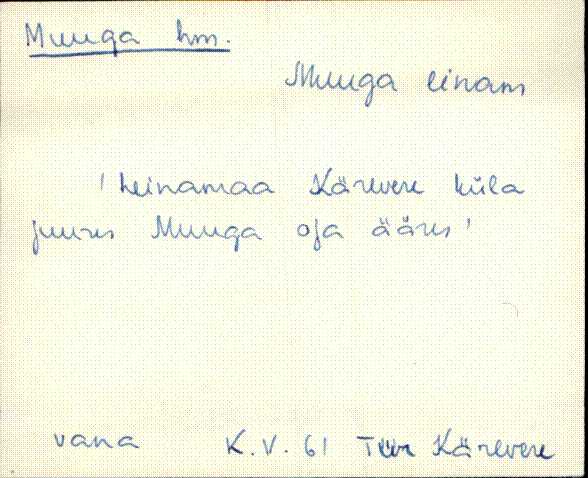 Muuga hm.
Muuga einam
'heinamaa Kärevere küla
juures Muuga oja ääres'
vana K.V. 61 Tür Kärevere